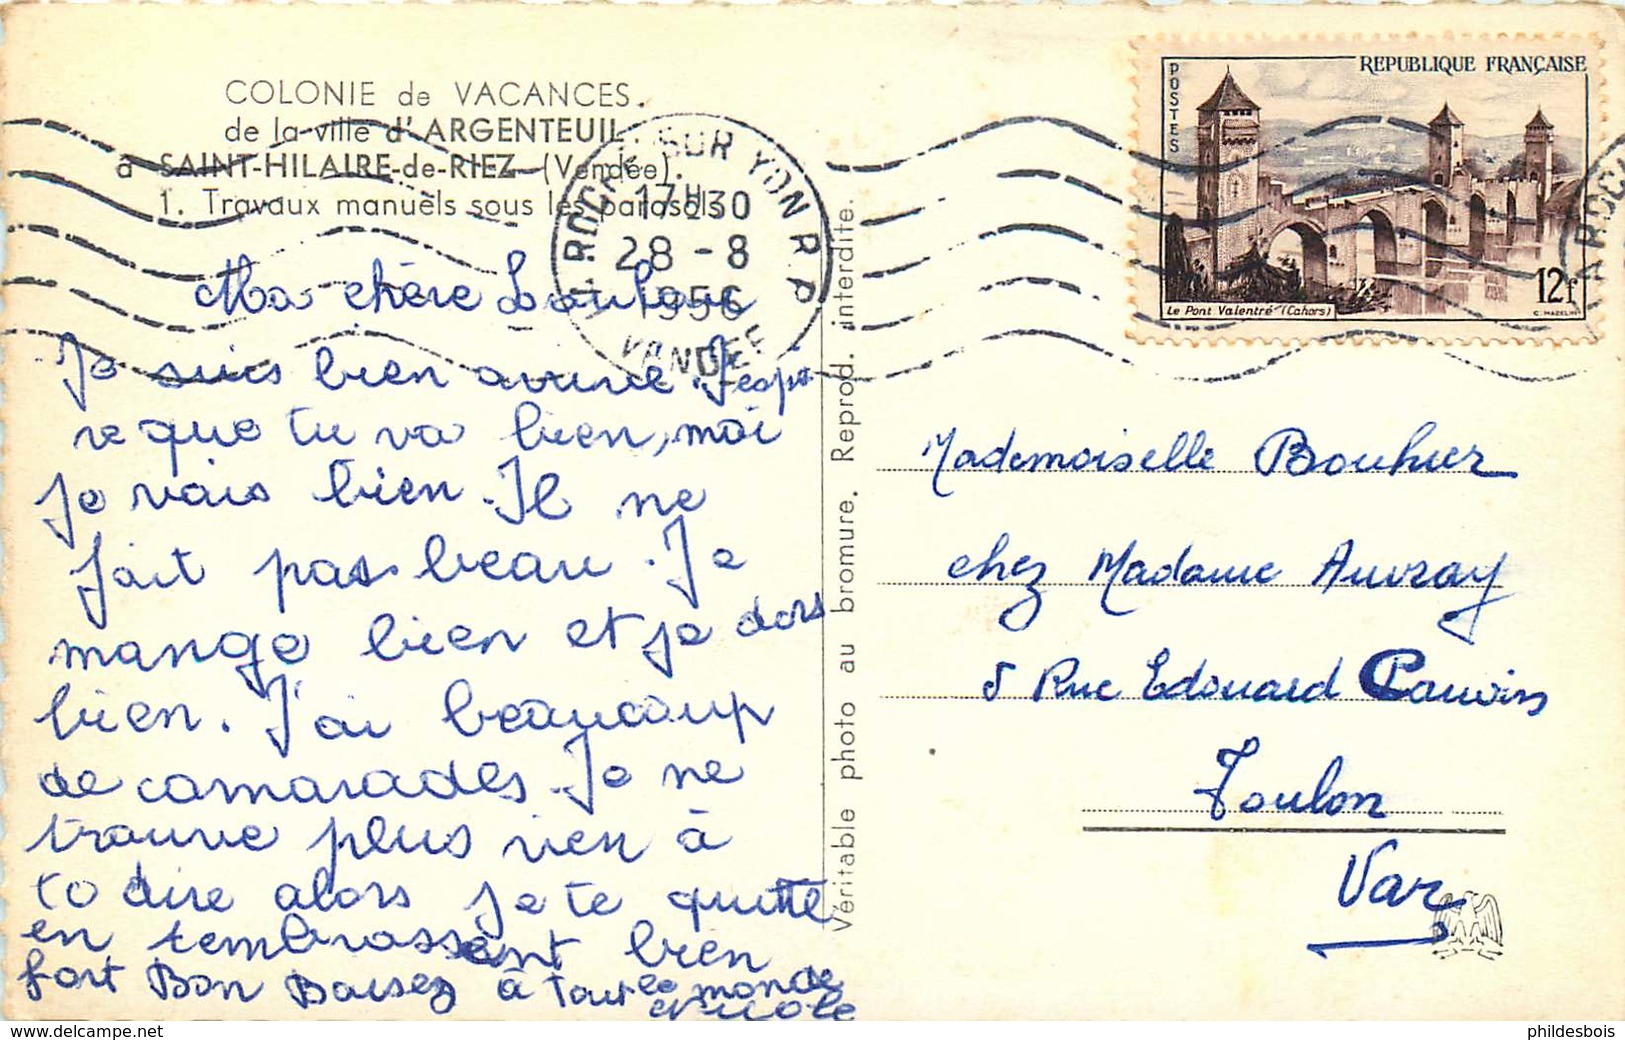 COLONIE de VACANCES.
de la ville d'ARGENTEUIL
à SAINT-HILAIRE-de-RIEZ (Vendée).
1. Travaux manuels sous les parasols
LA ROCHE SUR YON R P
17H30
28 - 8
1956
VANDEE
REPUBLIQUE FRANÇAISE
POSTES
Le Pont Valentré (Cahors)
12f
C. MAZELIN
LA ROCH
Ma chère
Je suis bien arrivée. J'espè
re que tu va bien, moi
Je vais bien. Il ne
fait pas beau. Je
mange bien et je dors
bien. J'ai beaucoup
de camarades. Je ne
trouve plus rien à
to dire alors je te quitte
en tembrassant bien
fort Bon Baiser à tout le monde
Véritable photo au bromure. Reprod. interdite.
Mademoiselle Bouhier
chez Madame Auvray
5 Rue Edouard Cauvin
Toulon
Var
phildesbois